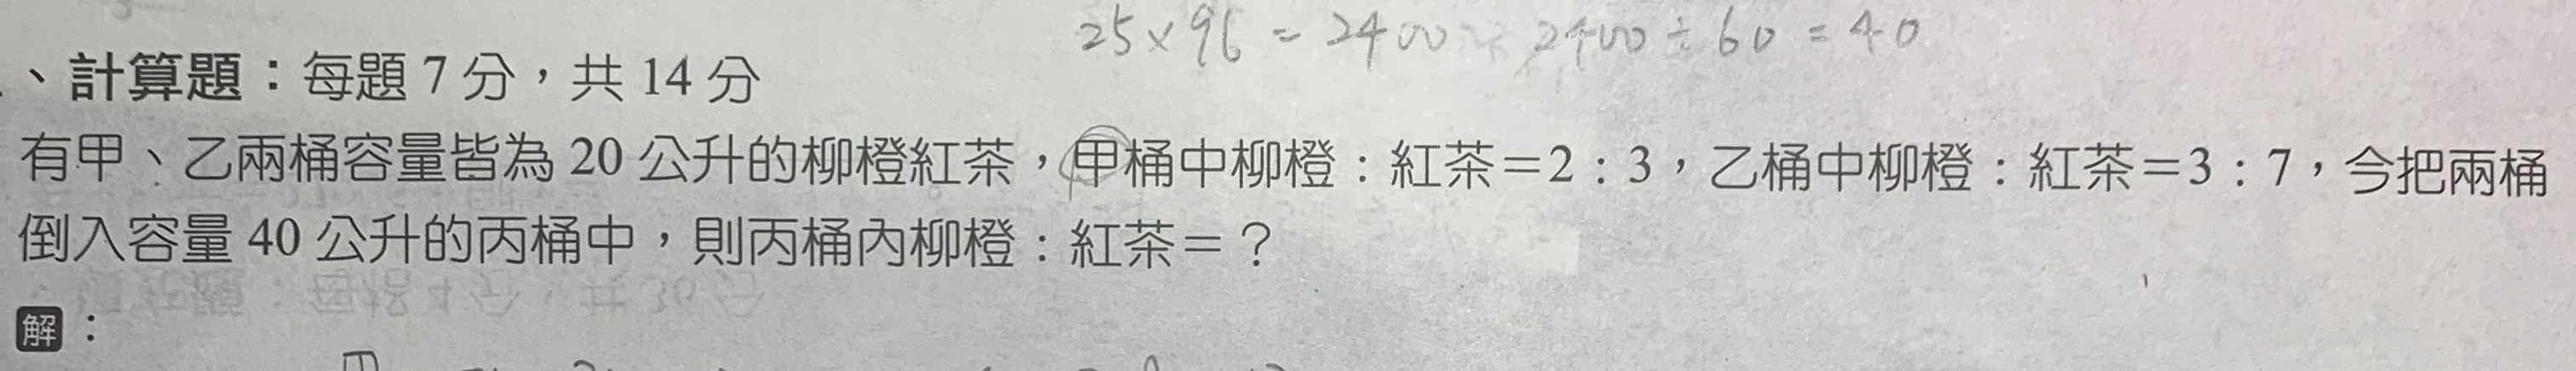 25×96=2400 2400÷60=40
、計算題：每題 7 分，共 14 分
有甲、乙兩桶容量皆為 20 公升的柳橙紅茶，甲桶中柳橙：紅茶＝2：3，乙桶中柳橙：紅茶＝3：7，今把兩桶
倒入容量 40 公升的丙桶中，則丙桶內柳橙：紅茶＝？
解：